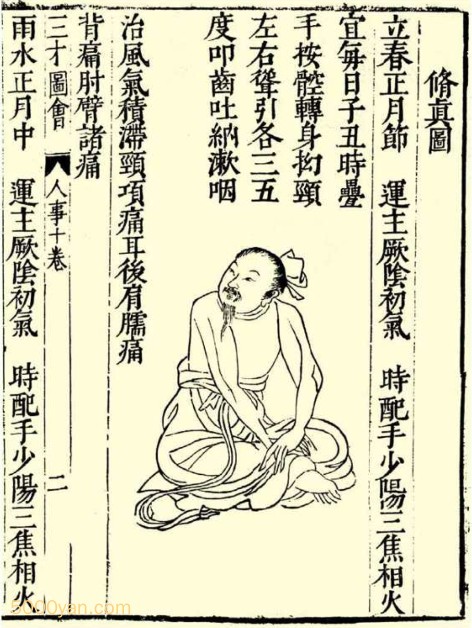 脩眞圖
立春正月節　運主厥陰初氣　時配手少陽三焦相火
宜每日子丑時疊
手按髀轉身拗頸
左右聳引各三五
度叩齒吐納漱咽
治風氣積滯頸項痛耳後肩臑痛
背痛肘臂諸痛
三才圖會　人事十卷　二
雨水正月中　運主厥陰初氣　時配手少陽三焦相火
5000yan.com